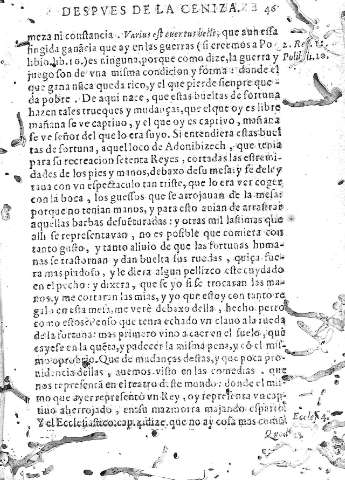 DESPVES DE LA CENIZA. 46
meza ni constancia. Varius est euentus belli, que aun essa
fingida ganãcia que ay en las guerras (si creemos a Po-
libio.lib.10.) es ninguna, porque como dize, la guerra y
juego son de vna misma condicion y forma: donde el
que gana nũca queda rico, y el que pierde siempre que-
da pobre. De aqui nace, que estas bueltas de fortuna
hazen tales trueques y mudanças, que el que oy es libre
mañana se ve captiuo, y el que oy es captiuo, mañana
se ve señor del que lo era suyo. Si entendiera estas buel
tas de fortuna, aquel loco de Adonibezech, que tenia
para su recreacion setenta Reyes, cortadas las estremi-
dades de los pies y manos, debaxo de su mesa: y se dele y
taua con vn espectaculo tan triste, que lo era ver coger
con la boca, los guessos que se arrojauan de la mesa:
porque no tenian manos, y para esto auian de arrastrar
aquellas barbas desuēturadas: y otras mil lastimas que
alli se representauan, no es posible que comiera con
tanto gusto, y tanto aliuio de que las fortunas huma-
nas se trastornan y dan buelta sus ruedas, quiça sue-
ra mas piadoso, y le diera algun pellizco este cuydado
en el pecho: y dixera, que se yo si se trocasan las ma-
nos, y me cortaran las mias, y yo que estoy con tanto re
galo en esta mesa, me verè debaxo della, hecho perro
como estos:
de la fortuna: mas primero vino a caer en el suelo, quē
cayesse en la quēta, y padecer la misma pena, y cō el mis-
mo oprobrio. Que de mudanças destas, y que poca pro
uidencia dellas, auemos visto en las comedias que
nos representa en el teatro deste mundo: donde el mis
mo que ayer representò vn Rey, oy representa vn cap
tiuo aherrojado, en su mazmorra majando esparto.
Y el Ecclesiastico.cap.4.dize, que no ay cosa mas comũ
2. Reg. 11.
Polib. li. 10.
Eccles. 4.